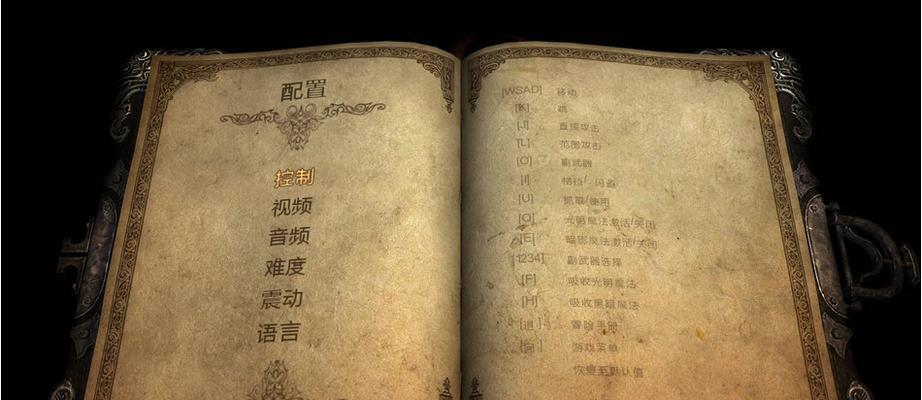 配置
控制
视频
音频
难度
震动
语言
[WSAD] 移动
[K] 跳
[J] 直接攻击
[L] 范围攻击
[O] 副武器
[I] 格挡/ 闪避
[U] 抓取/使用
[Q] 光明魔法激活/关闭
[E] 暗影魔法激活/关闭
[1234] 副武器选择
[F] 吸收光明魔法
[H] 吸收黑暗魔法
冒险手册
游戏菜单
恢复至默认值